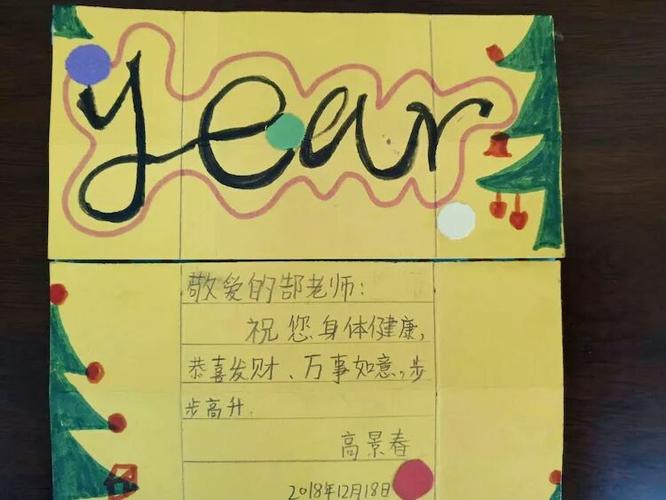 year
敬爱的郜老师：
祝您身体健康，
恭喜发财、万事如意，步
步高升.
高景春
2018年12月18日